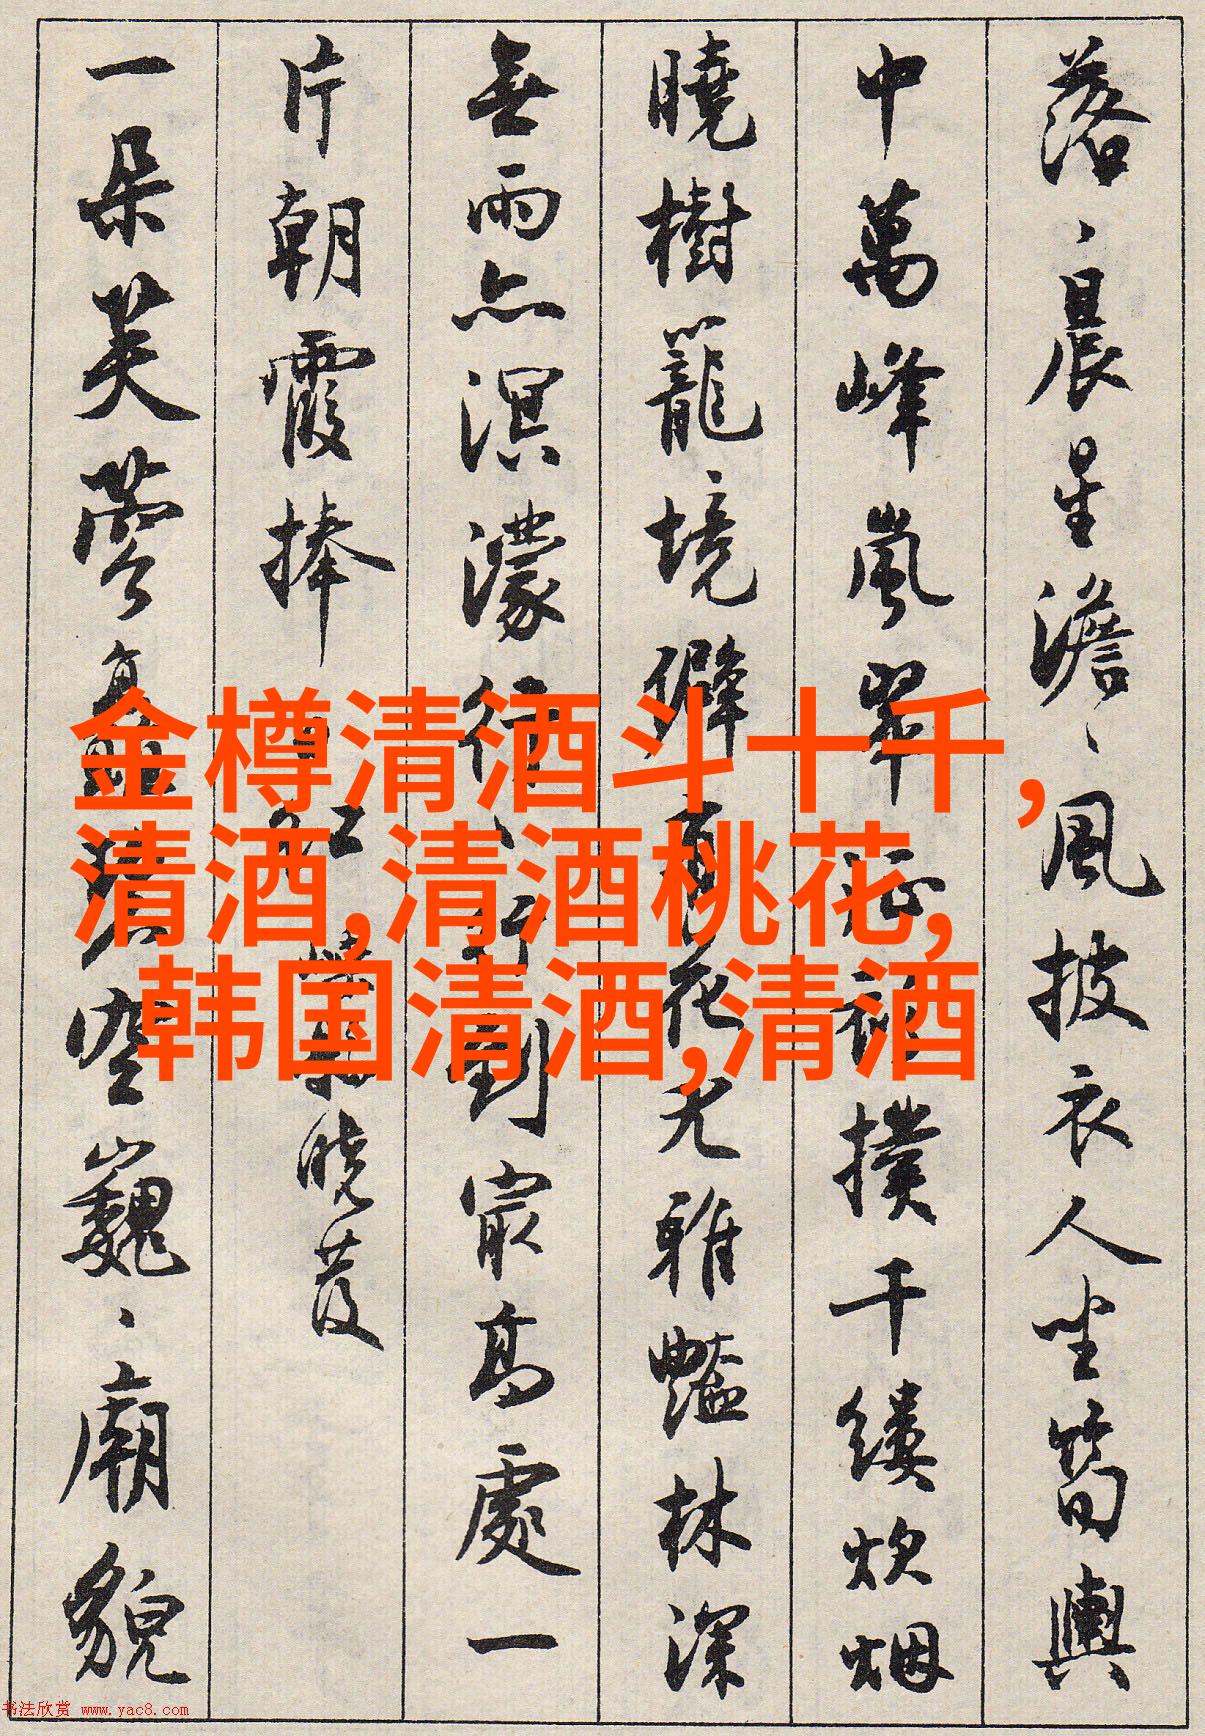 落、晨星澹、風披衣人坐筍輿
中萬峰嵐翠 撲千縷炊烟
曉樹籠、境僻 花尤雅豔林深
無雨亦溟濛行、 到最高處一
片朝霞捧
曉發
一朵芙蓉 巍、廟貌
金樽清酒斗十千，
清酒,清酒桃花,
韩国清酒,清酒
书法欣赏 www.yac8.com